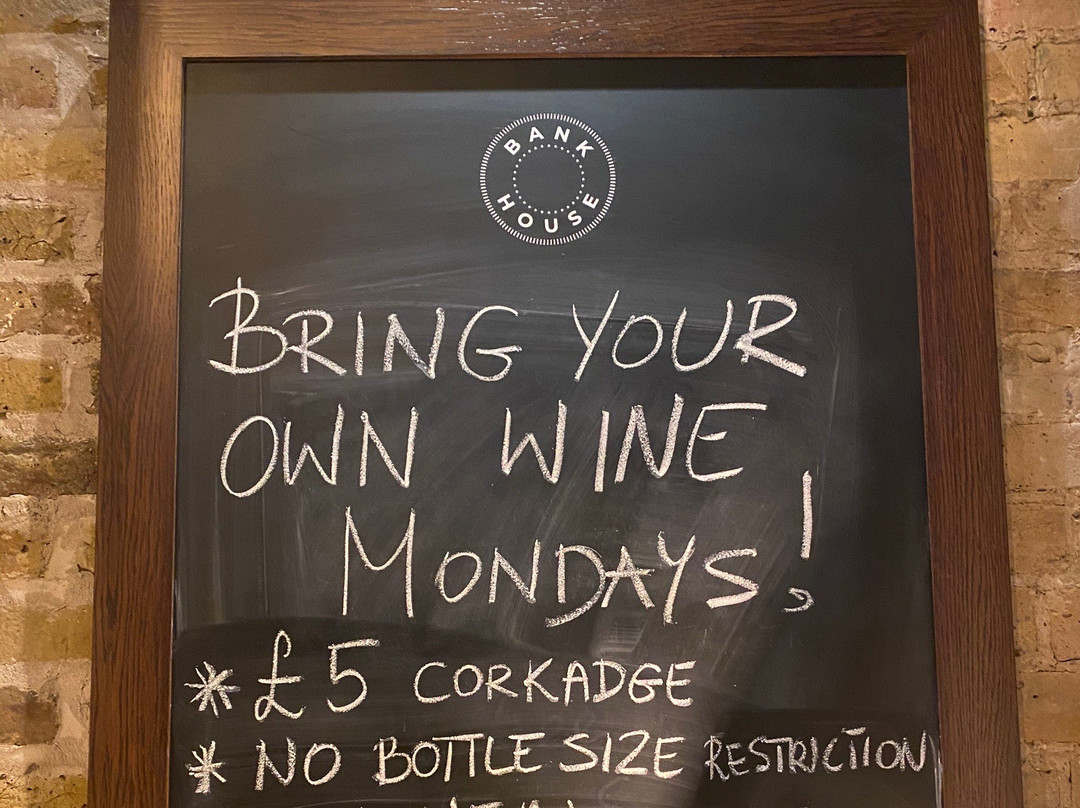 BANK
HOUSE
BRING YOUR
OWN WINE
MONDAYS!
* £5 CORKADGE
* NO BOTTLE SIZE RESTRICTION